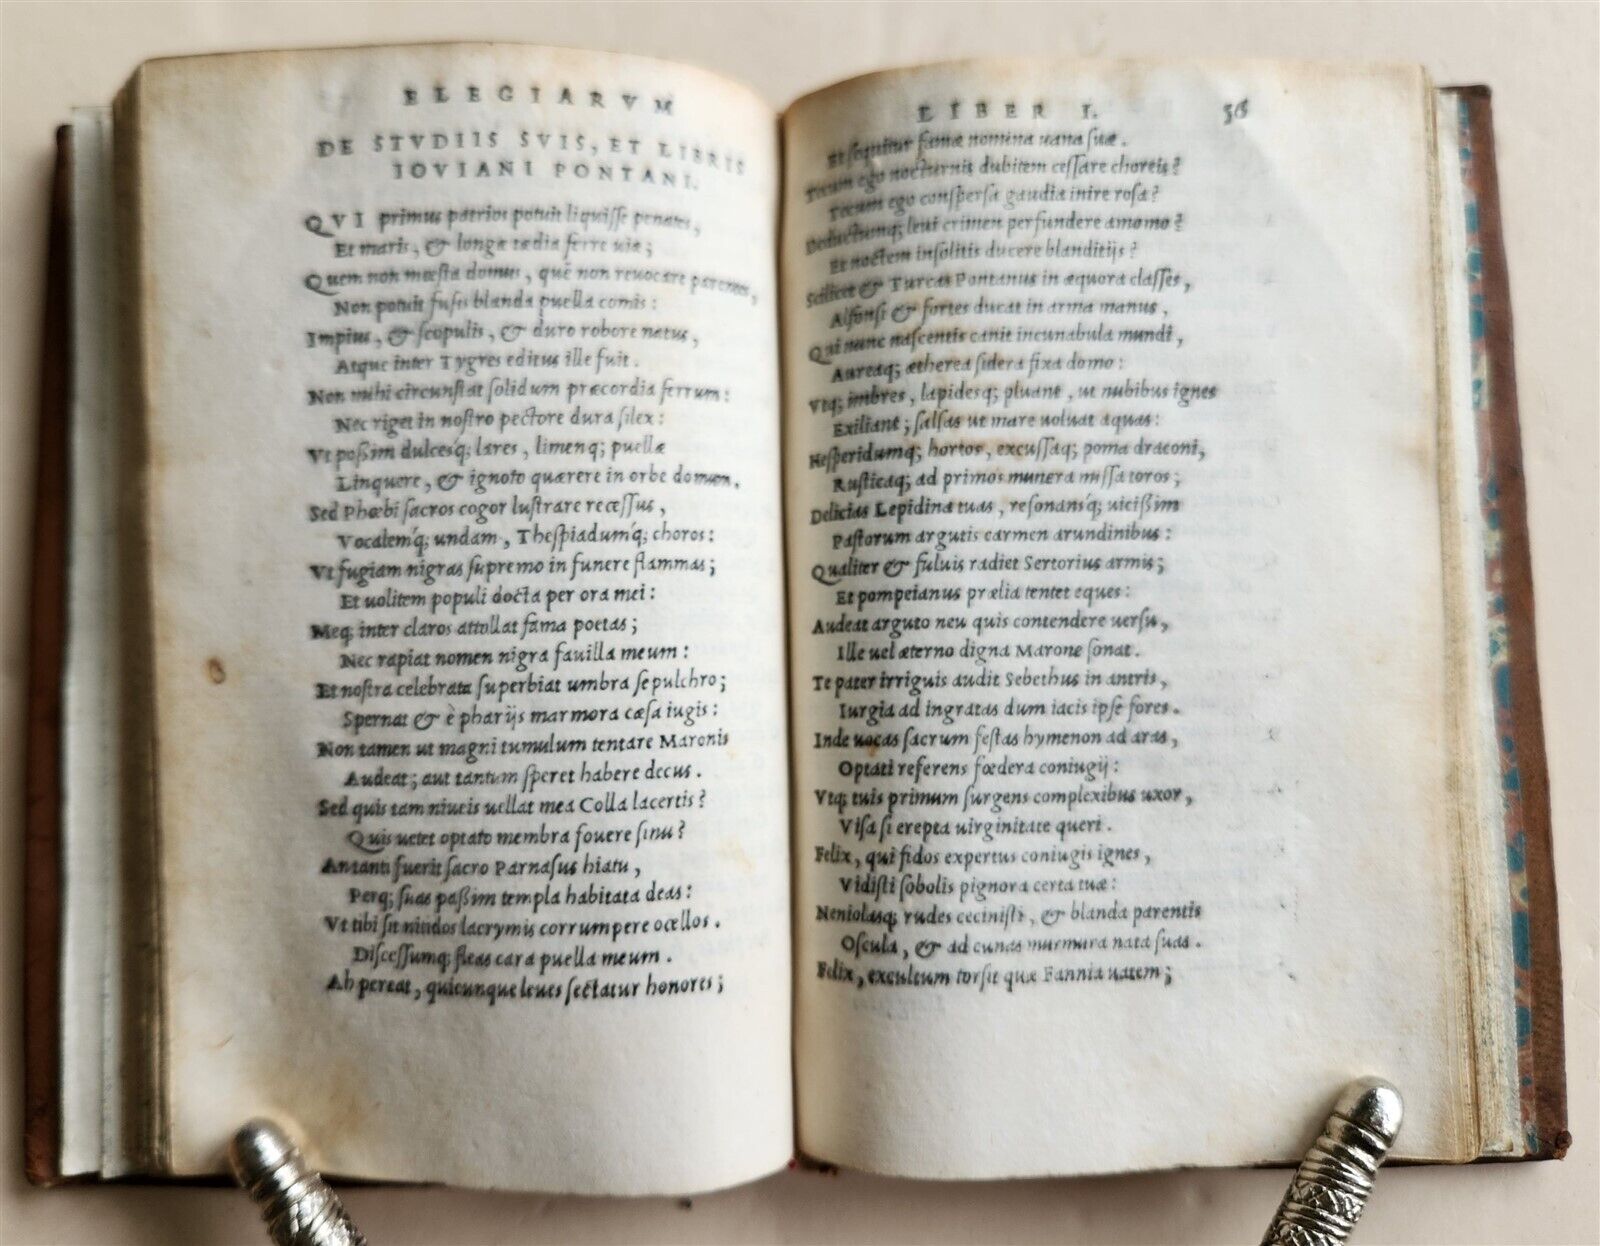 ELEGIARVM
DE STVDIIS SVIS, ET LIBRIS
IOVIANI PONTANI.
QVI primus patrios potuit liquisse penates,
Et maris, & longæ tædia ferre uiæ;
Quem non mœsta domus, quẽ non reuocare parentes,
Non potuit fusis blanda puella comis:
Impius, & scopulis, & duro robore natus,
Atque inter Tygres editus ille fuit.
Non mihi circunstat solidum præcordia ferrum:
Nec riget in nostro pectore dura silex:
Vt possim dulcesq; lares, limenq; puellæ
Linquere, & ignoto quærere in orbe domum.
Sed Phœbi sacros cogor lustrare recessus,
Vocalem'q; undam, Thespiadum'q; choros:
Vt fugiam nigras supremo in funere flammas;
Et uolitem populi docta per ora mei:
Meq; inter claros attollat fama poetas;
Nec rapiat nomen nigra fauilla meum:
Et nostra celebrata superbiat umbra sepulchro;
Spernat & è pharijs marmora cæsa iugis:
Non tamen ut magni tumulum tentare Maronis
Audeat; aut tantum speret habere decus.
Sed quis tam niueis uellat mea Colla lacertis?
Quis uetet optato membra fouere sinu?
An tanti fuerit sacro Parnasus hiatu,
Perq; suas passim templa habitata deas:
Vt tibi sit nitidos lacrymis corrumpere ocellos.
Discessumq; fleas cara puella meum.
Ah pereat, quicunque leues sectatur honores;
LIBER I. 36
Et sequitur famæ nomina uana suæ.
Tecum ego nocturnis dubitem cessare choreis?
Tecum ego conspersa gaudia inire rosa?
Deductumq; leui crimen perfundere amomo?
Et noctem insolitis ducere blanditijs?
Scilicet & Turcas Pontanus in æquora classes,
Alfonsi & fortes ducat in arma manus,
Qui nunc nascentis canit incunabula mundi,
Aureaq; ætherea sidera fixa domo:
Vtq; imbres, lapidesq; pluant, ut nubibus ignes
Exiliant; salsas ut mare uoluat aquas:
Hesperidumq; hortos, excussaq; poma draconi,
Rusticaq; ad primos munera missa toros;
Delicias Lepidina tuas, resonans'q; uicissim
Pastorum argutis carmen arundinibus:
Qualiter & fuluis radiet Sertorius armis;
Et pompeianus prælia tentet eques:
Audeat arguto neu quis contendere uersu,
Ille uel æterno digna Marone sonat.
Te pater irriguis audit Sebethus in antris,
Iurgia ad ingratas dum iacis ipse fores.
Inde uocas sacrum festas hymenon ad aras,
Optati referens fœdera coniugij:
Vtq; tuis primum surgens complexibus uxor,
Visa si erepta uirginitate queri.
Felix, qui fidos expertus coniugis ignes,
Vidisti sobolis pignora certa tuæ:
Neniolasq; rudes cecinisti, & blanda parentis
Oscula, & ad cunas murmura nata suas.
Felix, excultum torsit quæ Fannia uatem;